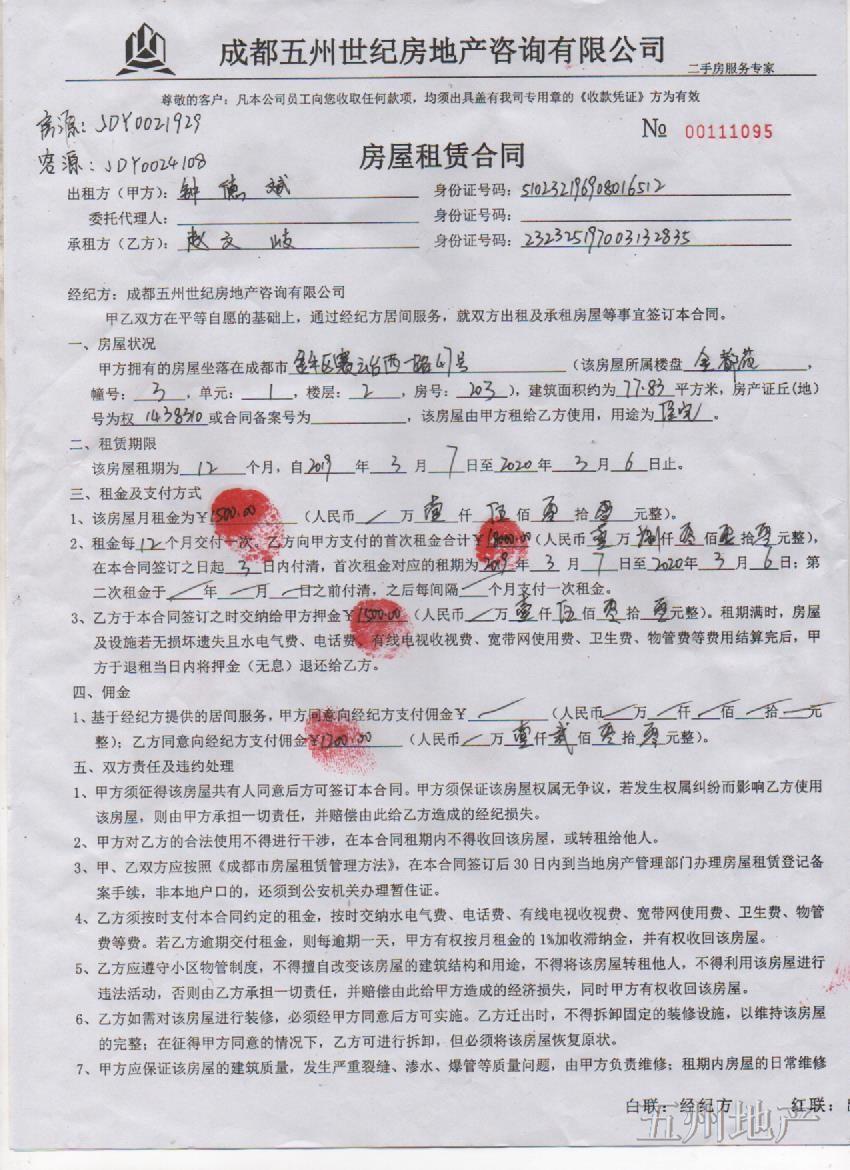 成都五州世纪房地产咨询有限公司
二手房服务专家
尊敬的客户：凡本公司员工向您收取任何款项，均须出具盖有我司专用章的《收款凭证》方为有效
房源：JDY0021929
№ 00111095
客源：JDY0024108
房屋租赁合同
出租方（甲方）：钟德斌 身份证号码：510232196908016512
委托代理人： 身份证号码：
承租方（乙方）：赵文岐 身份证号码：232325197003132835
经纪方：成都五州世纪房地产咨询有限公司
甲乙双方在平等自愿的基础上，通过经纪方居间服务，就双方出租及承租房屋等事宜签订本合同。
一、房屋状况
甲方拥有的房屋坐落在成都市金牛区 西一路47号（该房屋所属楼盘 金都苑，
幢号：3，单元：1，楼层：2，房号：203），建筑面积约为77.83平方米，房产证丘(地)
号为权1438310或合同备案号为 ，该房屋由甲方租给乙方使用，用途为住宅。
二、租赁期限
该房屋租期为12个月，自2019年3月7日至2020年3月6日止。
三、租金及支付方式
1、该房屋月租金为￥1500.00（人民币／万壹仟伍佰零拾零元整）。
2、租金每12个月交付一次。乙方向甲方支付的首次租金合计￥18000.00（人民币壹万捌仟零佰零拾零元整），
在本合同签订之日起3日内付清，首次租金对应的租期为2019年3月7日至2020年3月6日；第
二次租金于／年／月／日之前付清，之后每间隔／个月支付一次租金。
3、乙方于本合同签订之时交纳给甲方押金￥1500.00（人民币／万壹仟伍佰零拾零元整）。租期满时，房屋
及设施若无损坏遗失且水电气费、电话费、有线电视收视费、宽带网使用费、卫生费、物管费等费用结算完后，甲
方于退租当日内将押金（无息）退还给乙方。
四、佣金
1、基于经纪方提供的居间服务，甲方同意向经纪方支付佣金￥／（人民币／万／仟／佰／拾／元
整）；乙方同意向经纪方支付佣金￥1200.00（人民币／万壹仟贰佰零拾零元整）。
五、双方责任及违约处理
1、甲方须征得该房屋共有人同意后方可签订本合同。甲方须保证该房屋权属无争议，若发生权属纠纷而影响乙方使用
该房屋，则由甲方承担一切责任，并赔偿由此给乙方造成的经纪损失。
2、甲方对乙方的合法使用不得进行干涉，在本合同租期内不得收回该房屋，或转租给他人。
3、甲、乙双方应按照《成都市房屋租赁管理方法》，在本合同签订后30日内到当地房产管理部门办理房屋租赁登记备
案手续，非本地户口的，还须到公安机关办理暂住证。
4、乙方须按时支付本合同约定的租金，按时交纳水电气费、电话费、有线电视收视费、宽带网使用费、卫生费、物管
费等费。若乙方逾期交付租金，则每逾期一天，甲方有权按月租金的1%加收滞纳金，并有权收回该房屋。
5、乙方应遵守小区物管制度，不得擅自改变该房屋的建筑结构和用途，不得将该房屋转租他人，不得利用该房屋进行
违法活动，否则由乙方承担一切责任，并赔偿由此给甲方造成的经济损失，同时甲方有权收回该房屋。
6、乙方如需对该房屋进行装修，必须经甲方同意后方可实施。乙方迁出时，不得拆卸固定的装修设施，以维持该房屋
的完整；在征得甲方同意的情况下，乙方可进行拆卸，但必须将该房屋恢复原状。
7、甲方应保证该房屋的建筑质量，发生严重裂缝、渗水、爆管等质量问题，由甲方负责维修；租期内房屋的日常维修
白联：经纪方 红联：
五州地产